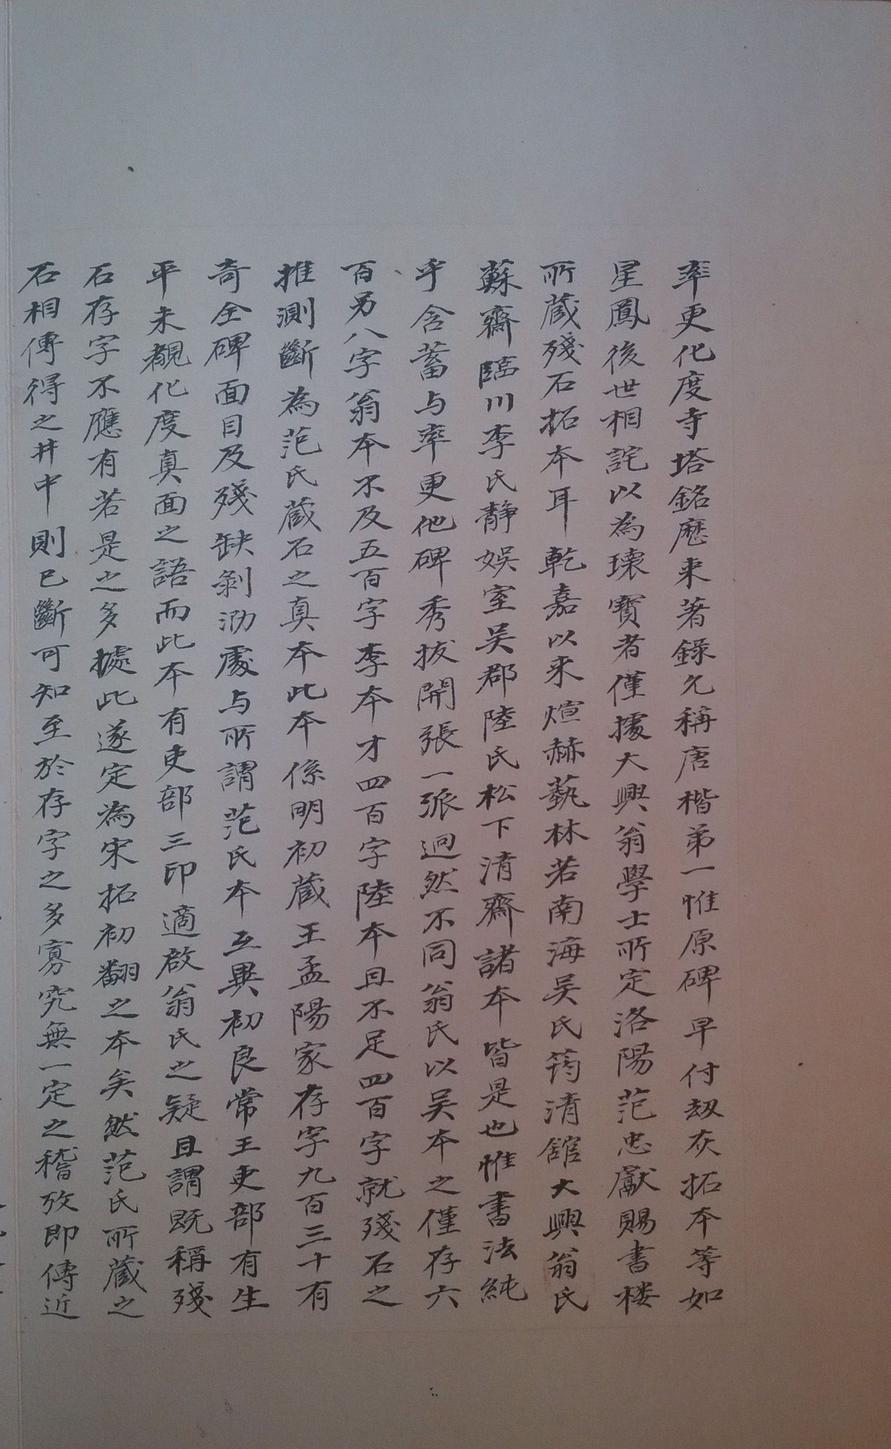 率更化度寺塔銘歷来著錄允稱唐楷弟一惟原碑早付劫灰拓本等如
星鳳後世相詫以為瓌寶者僅據大興翁學士所定洛陽范忠獻賜書楼
所蔵殘石拓本耳乾嘉以来煊赫藝林若南海吴氏筠清館大興翁氏
蘇齋臨川李氏靜娛室吴郡陸氏松下清齋諸本皆是也惟書法純
乎含蓄与率更他碑秀拔開張一派迥然不同翁氏以吴本之僅存六
百另八字翁本不及五百字李本才四百字陸本且不足四百字就殘石之
推測斷為范氏蔵石之真本此本係明初蔵王孟陽家存字九百三十有
奇全碑面目及殘缺剝泐處与所謂范氏本互異初良常王吏部有生
平未覩化度真面之語而此本有吏部三印適啟翁氏之疑且謂既稱殘
石存字不應有若是之多據此遂定為宋拓初翻之本矣然范氏所蔵之
石相傳得之井中則已斷可知至於存字之多寡究無一定之稽攷即傳近